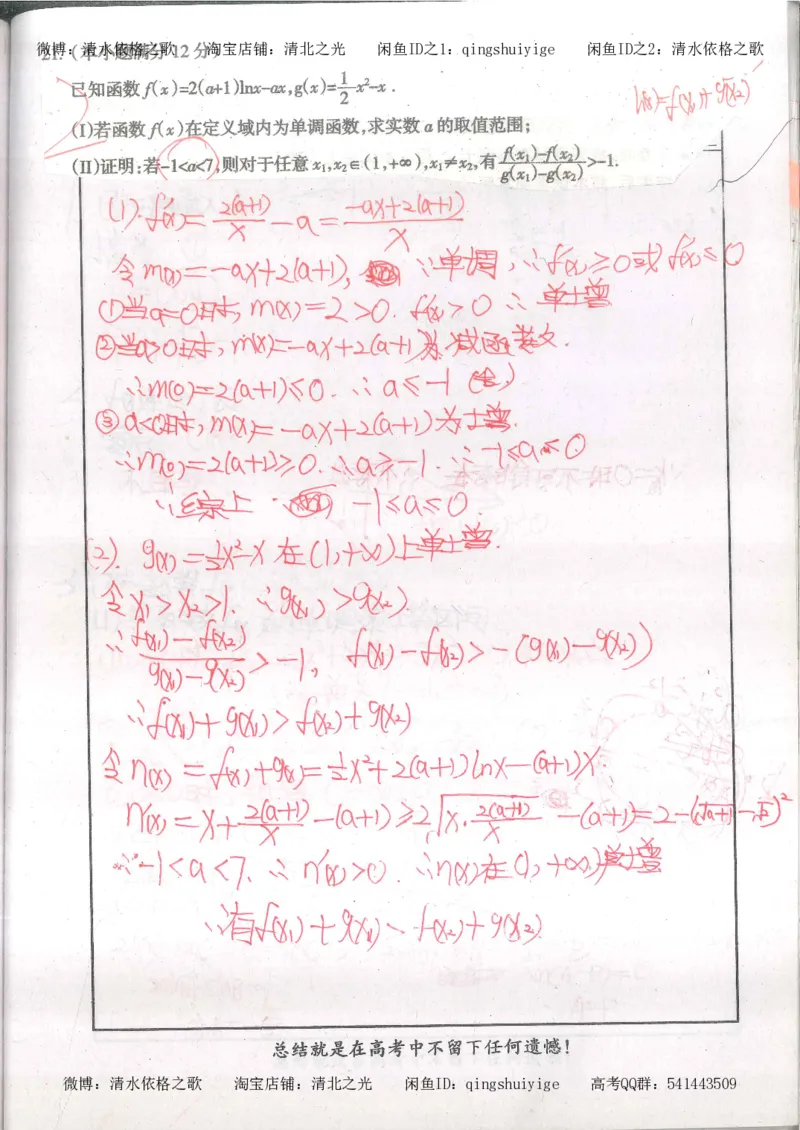 微博：清水依格之歌 淘宝店铺：清北之光 闲鱼ID之1：qingshuiyige 闲鱼ID之2：清水依格之歌
21.（本小题满分12分）
已知函数f(x)=2(a+1)lnx-ax,g(x)=1/2 x²-x.
h(x)=f(x₁)+g(x₂)
(Ⅰ)若函数f(x)在定义域内为单调函数,求实数a的取值范围;
(Ⅱ)证明:若-1<a<7,则对于任意x₁,x₂∈(1,+∞),x₁≠x₂,有 (f(x₁)-f(x₂))/(g(x₁)-g(x₂))>-1.
(1).f'(x)=2(a+1)/x-a=(-ax+2(a+1))/x
令m(x)=-ax+2(a+1), ∵单调,∴f'(x)≥0或f'(x)≤0
①当a=0时,m(x)=2>0.f'(x)>0∴单增
②当a>0时,m(x)=-ax+2(a+1)为减函数.
∴m(0)=2(a+1)≤0.∴a≤-1(舍)
③a<0时,m(x)=-ax+2(a+1)为增.
∴m(0)=2(a+1)≥0.∴a≥-1.∴-1≤a<0
∴综上 -1≤a≤0.
(2).g(x)=1/2x²-x在(1,+∞)上单增.
令x₁>x₂>1.∴g(x₁)>g(x₂).
∴(f(x₁)-f(x₂))/(g(x₁)-g(x₂))>-1, f(x₁)-f(x₂)>-(g(x₁)-g(x₂))
∴f(x₁)+g(x₁)>f(x₂)+g(x₂)
令n(x)=f(x)+g(x)=1/2x²+2(a+1)lnx-(a+1)x.
n'(x)=x+2(a+1)/x-(a+1)≥2√(x·2(a+1)/x)-(a+1)=2-(√(a+1)-√2)²
∵-1<a<7.∴n'(x)>0.∴n(x)在(1,+∞)单增
∴有f(x₁)+g(x₁)>f(x₂)+g(x₂)
总结就是在高考中不留下任何遗憾!
微博：清水依格之歌 淘宝店铺：清北之光 闲鱼ID：qingshuiyige 高考QQ群：541443509